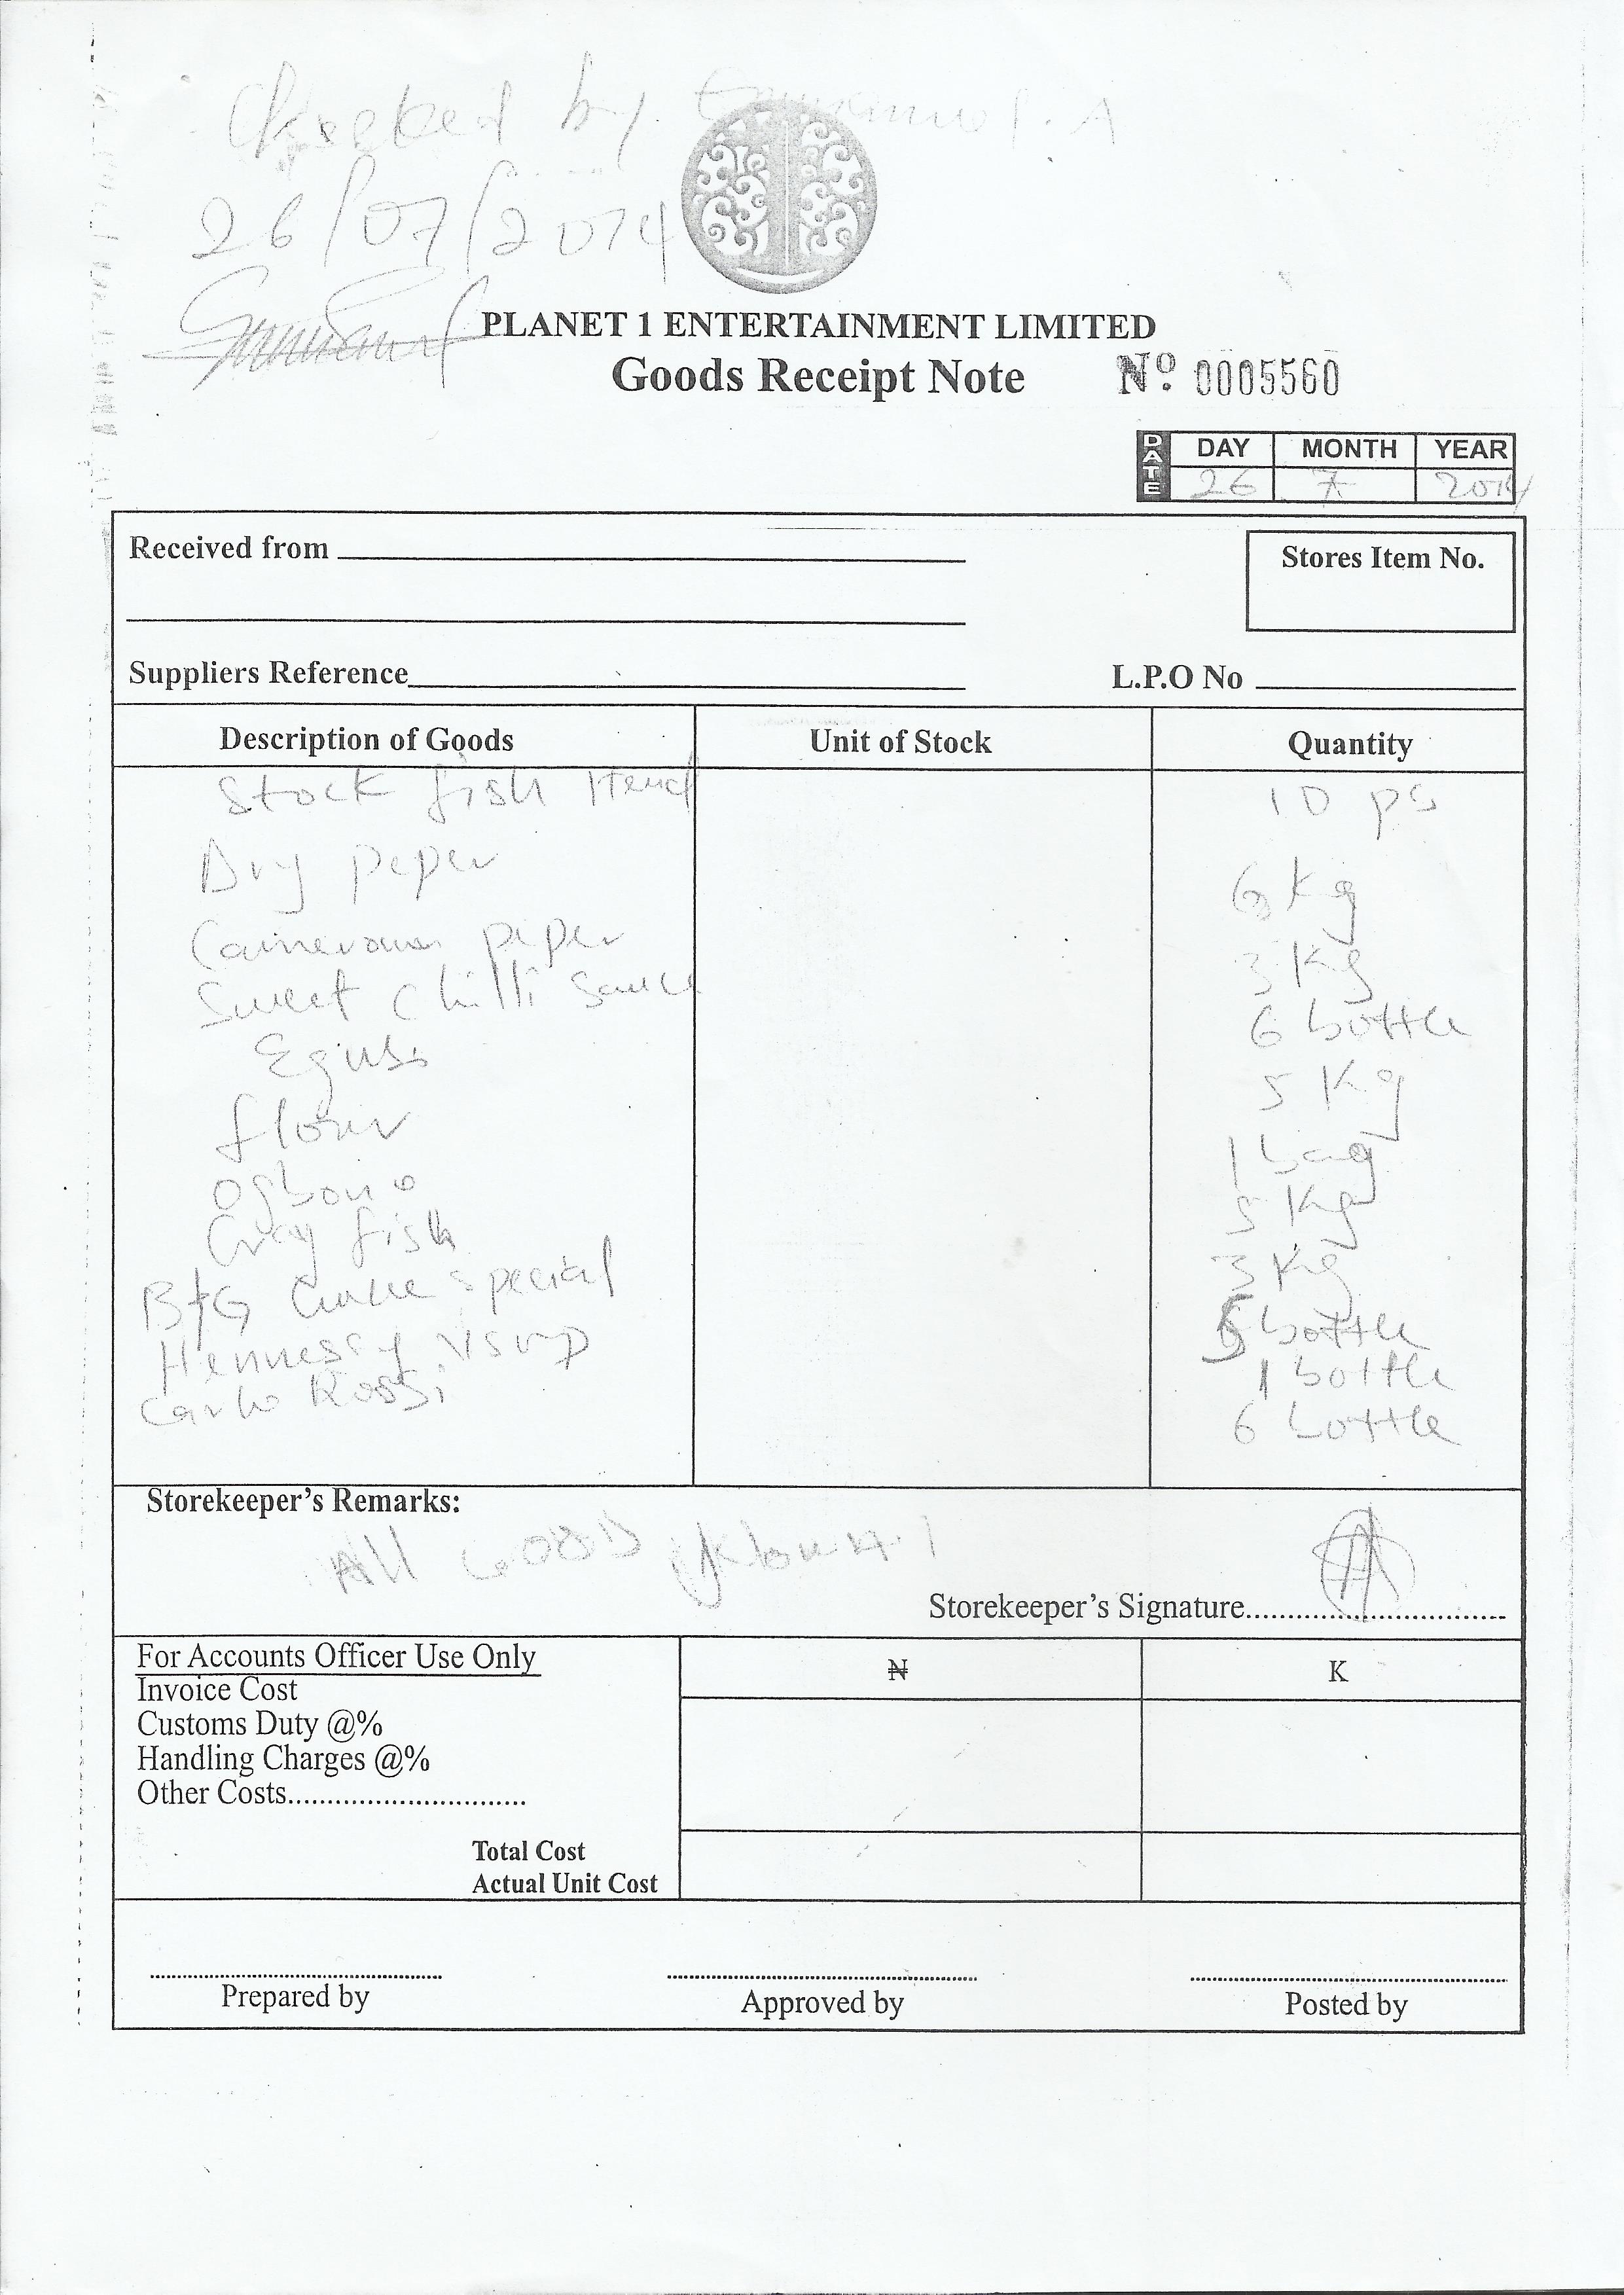 Checked by Emmanuel . A
26/07/2014
PLANET 1 ENTERTAINMENT LIMITED
Goods Receipt Note Nº. 0005560
DATE DAY MONTH YEAR
26 7 2014
Received from
Stores Item No.
Suppliers Reference L.P.O No
Description of Goods Unit of Stock Quantity
Stock fish Head 10 ps
Dry peper 6 Kg
Cameroun peper 3 Kg
Sweet Chilli Sauce 6 bottle
Egusi 5 Kg
flour 1 bag
Ogbono 5 Kg
Cray fish 3 Kg
B/G Cuvee special 5 bottle
Hennessy VSOP 1 bottle
Carlo Rossi 6 bottle
Storekeeper's Remarks:
All GOOD
Storekeeper's Signature
For Accounts Officer Use Only ₦ K
Invoice Cost
Customs Duty @%
Handling Charges @%
Other Costs
Total Cost
Actual Unit Cost
Prepared by Approved by Posted by